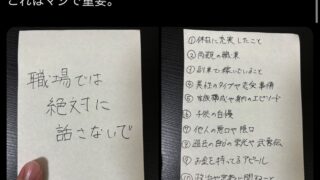 これはマジで重要。
職場では
絶対に
話さないで
①休日に充実したこと
②両親の職業
③副業で稼いでいること
④異性のタイプや恋愛事情
⑤家族構成や身内のエピソード
⑥子供の自慢
⑦他人の悪口や陰口
⑧過去の自分の栄光や武勇伝
⑨お金を持ってるアピール
⑩政治や宗教に関すること